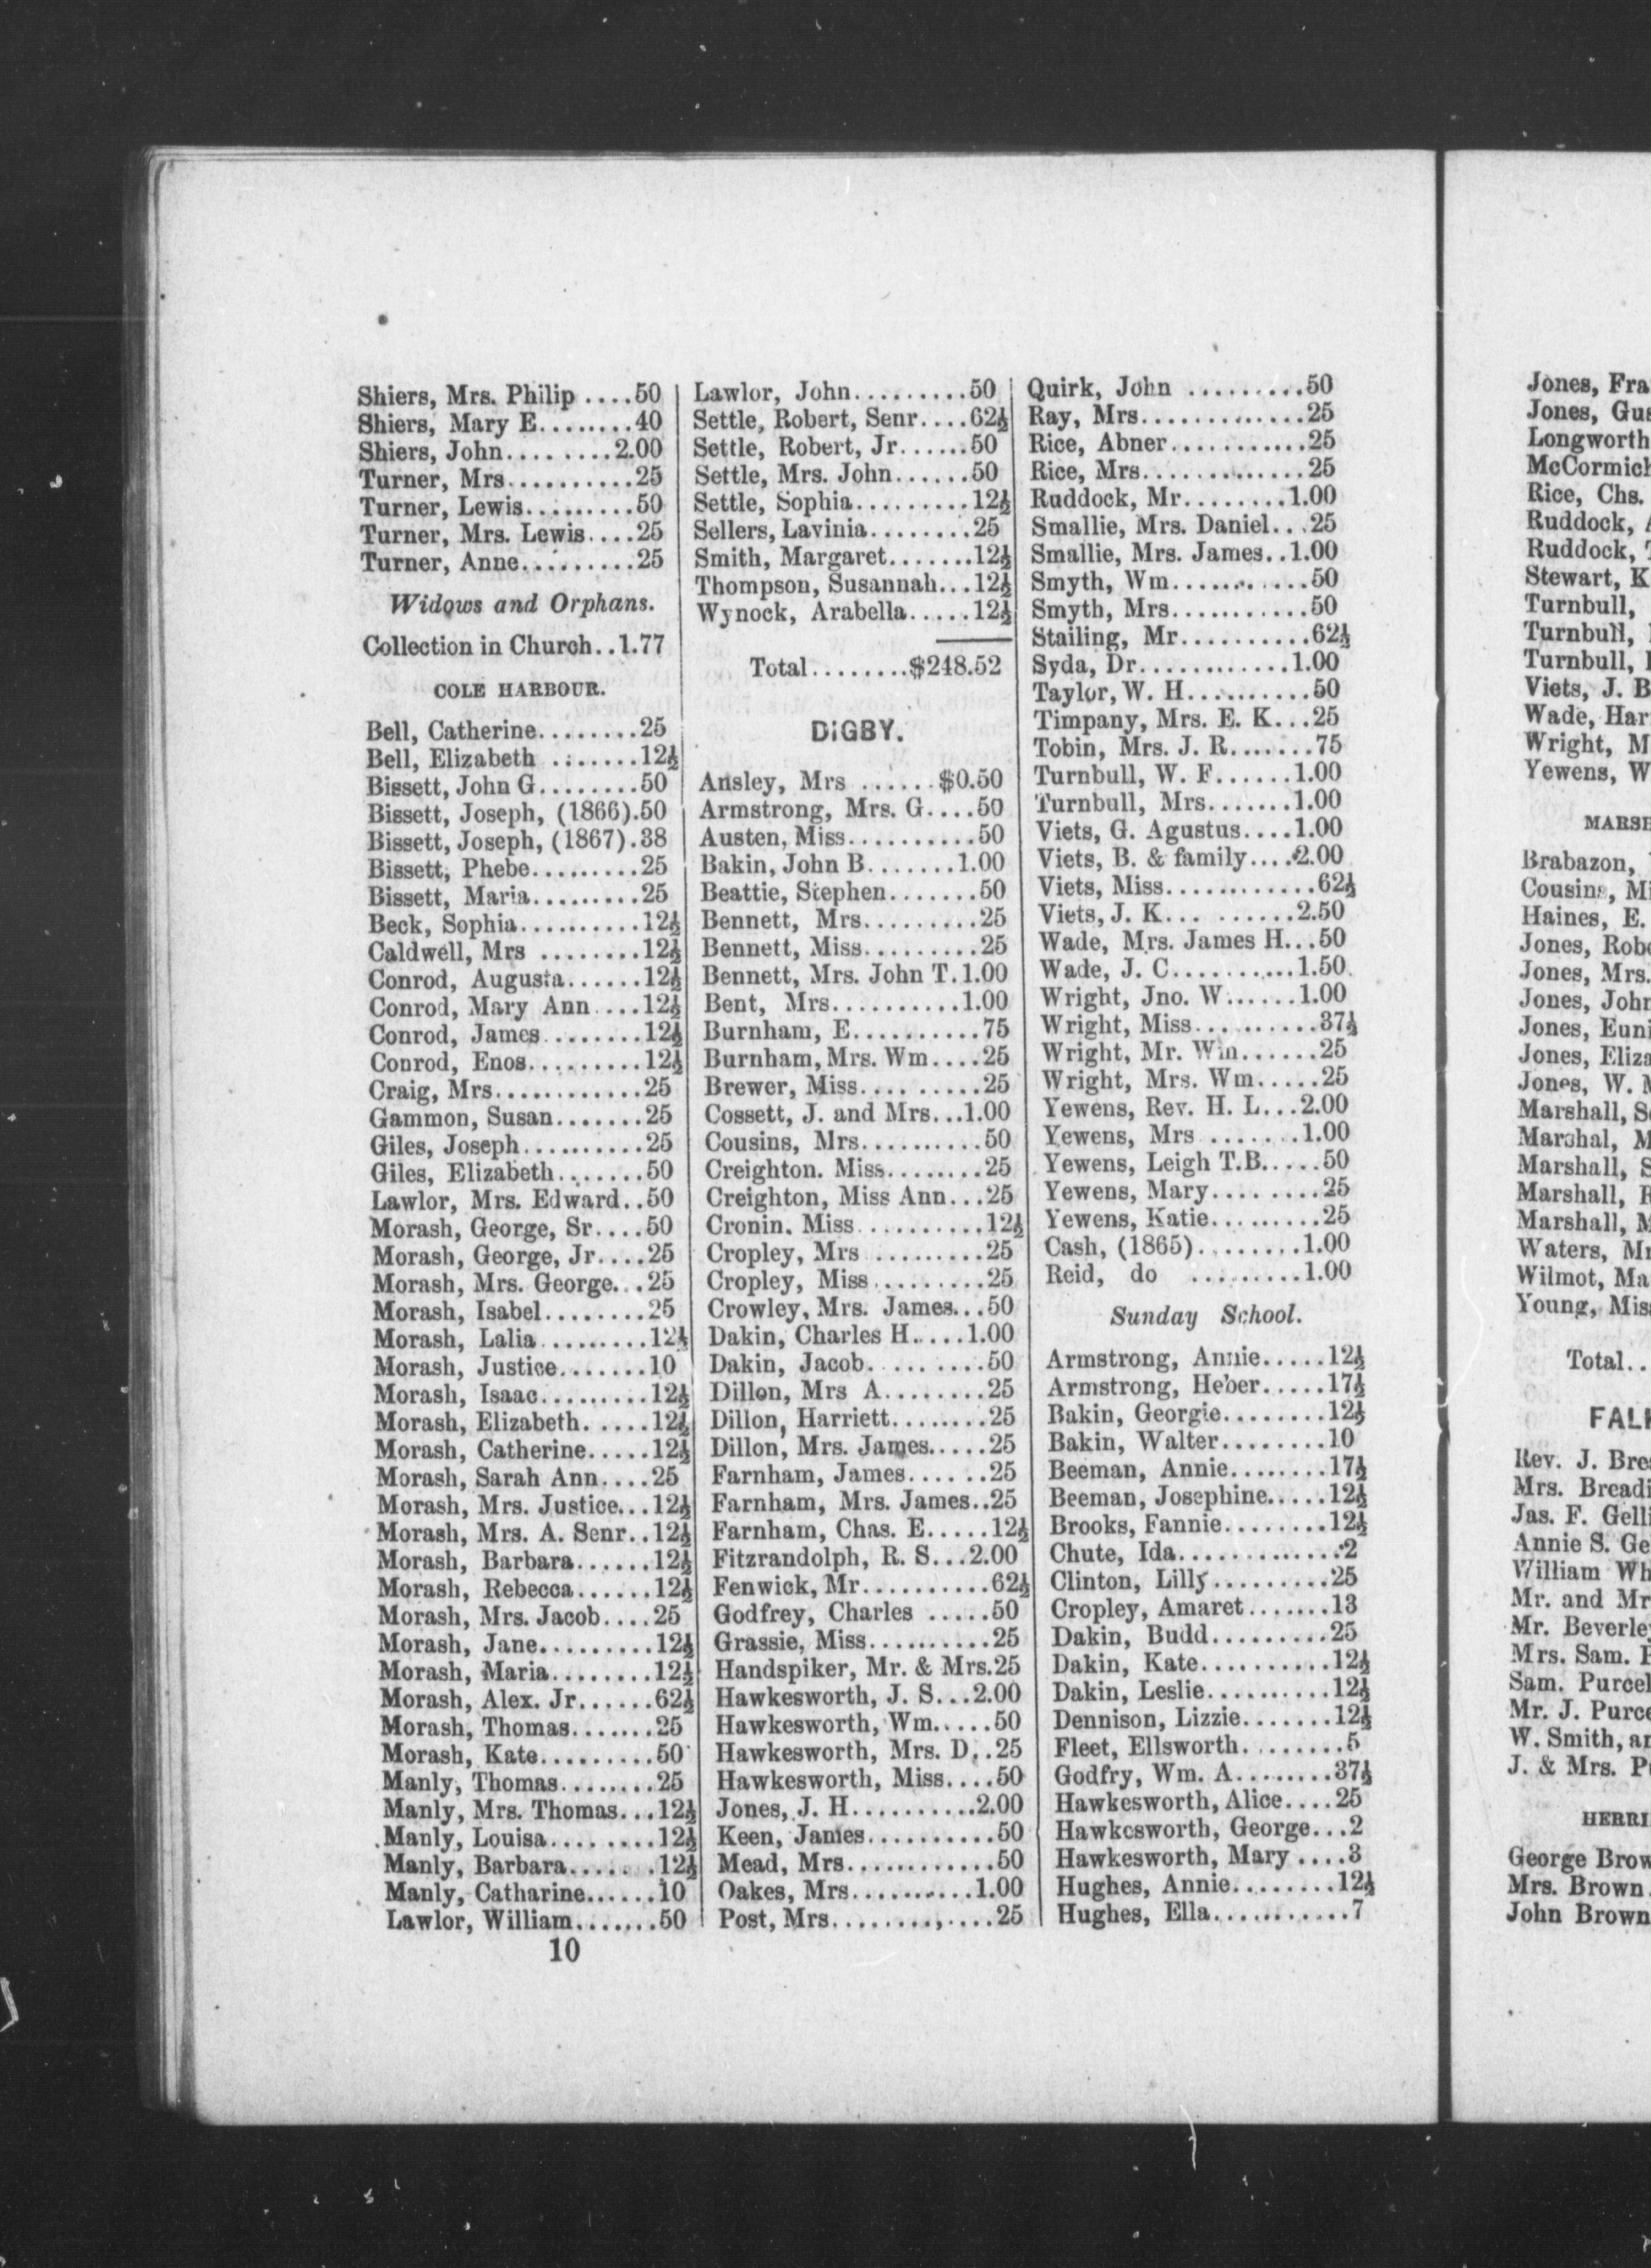 Shiers, Mrs. Philip ....50
Shiers, Mary E........40
Shiers, John.........2.00
Turner, Mrs..........25
Turner, Lewis.........50
Turner, Mrs. Lewis....25
Turner, Anne.........25
Widows and Orphans.
Collection in Church..1.77
COLE HARBOUR.
Bell, Catherine........25
Bell, Elizabeth .......12½
Bissett, John G........50
Bissett, Joseph, (1866).50
Bissett, Joseph, (1867).38
Bissett, Phebe.........25
Bissett, Maria.........25
Beck, Sophia..........12½
Caldwell, Mrs ........12½
Conrod, Augusta......12½
Conrod, Mary Ann ....12½
Conrod, James........12½
Conrod, Enos.........12½
Craig, Mrs............25
Gammon, Susan.......25
Giles, Joseph..........25
Giles, Elizabeth.......50
Lawlor, Mrs. Edward..50
Morash, George, Sr....50
Morash, George, Jr....25
Morash, Mrs. George...25
Morash, Isabel........25
Morash, Lalia.........12½
Morash, Justice.......10
Morash, Isaac.........12½
Morash, Elizabeth......12½
Morash, Catherine.....12½
Morash, Sarah Ann....25
Morash, Mrs. Justice...12½
Morash, Mrs. A. Senr..12½
Morash, Barbara......12½
Morash, Rebecca......12½
Morash, Mrs. Jacob....25
Morash, Jane.........12½
Morash, Maria........12½
Morash, Alex. Jr......62½
Morash, Thomas.......25
Morash, Kate.........50
Manly, Thomas........25
Manly, Mrs. Thomas...12½
Manly, Louisa.........12½
Manly, Barbara.......12½
Manly, Catharine......10
Lawlor, William.......50
10
Lawlor, John.........50
Settle, Robert, Senr....62½
Settle, Robert, Jr......50
Settle, Mrs. John......50
Settle, Sophia.........12½
Sellers, Lavinia........25
Smith, Margaret.......12½
Thompson, Susannah...12½
Wynock, Arabella.....12½
Total........$248.52
DIGBY.
Ansley, Mrs ......$0.50
Armstrong, Mrs. G....50
Austen, Miss..........50
Bakin, John B.......1.00
Beattie, Stephen.......50
Bennett, Mrs.........25
Bennett, Miss.........25
Bennett, Mrs. John T.1.00
Bent, Mrs...........1.00
Burnham, E..........75
Burnham, Mrs. Wm....25
Brewer, Miss..........25
Cossett, J. and Mrs...1.00
Cousins, Mrs..........50
Creighton. Miss........25
Creighton, Miss Ann...25
Cronin. Miss..........12½
Cropley, Mrs .........25
Cropley, Miss.........25
Crowley, Mrs. James...50
Dakin, Charles H.....1.00
Dakin, Jacob..........50
Dillon, Mrs A........25
Dillon, Harriett........25
Dillon, Mrs. James.....25
Farnham, James......25
Farnham, Mrs. James..25
Farnham, Chas. E.....12½
Fitzrandolph, R. S...2.00
Fenwick, Mr..........62½
Godfrey, Charles .....50
Grassie, Miss..........25
Handspiker, Mr. & Mrs.25
Hawkesworth, J. S...2.00
Hawkesworth, Wm.....50
Hawkesworth, Mrs. D..25
Hawkesworth, Miss....50
Jones, J. H..........2.00
Keen, James..........50
Mead, Mrs............50
Oakes, Mrs..........1.00
Post, Mrs.............25
Quirk, John .........50
Ray, Mrs.............25
Rice, Abner...........25
Rice, Mrs.............25
Ruddock, Mr........1.00
Smallie, Mrs. Daniel...25
Smallie, Mrs. James..1.00
Smyth, Wm...........50
Smyth, Mrs...........50
Stailing, Mr..........62½
Syda, Dr............1.00
Taylor, W. H..........50
Timpany, Mrs. E. K...25
Tobin, Mrs. J. R.......75
Turnbull, W. F......1.00
Turnbull, Mrs.......1.00
Viets, G. Agustus....1.00
Viets, B. & family....2.00
Viets, Miss............62½
Viets, J. K... ......2.50
Wade, Mrs. James H...50
Wade, J. C..........1.50
Wright, Jno. W......1.00
Wright, Miss..........37½
Wright, Mr. Wm......25
Wright, Mrs. Wm.....25
Yewens, Rev. H. L...2.00
Yewens, Mrs .......1.00
Yewens, Leigh T.B.....50
Yewens, Mary.........25
Yewens, Katie.........25
Cash, (1865)........1.00
Reid, do .........1.00
Sunday School.
Armstrong, Annie.....12½
Armstrong, Heber.....17½
Bakin, Georgie........12½
Bakin, Walter........10
Beeman, Annie........17½
Beeman, Josephine.....12½
Brooks, Fannie........12½
Chute, Ida.............2
Clinton, Lilly.........25
Cropley, Amaret.......13
Dakin, Budd.........25
Dakin, Kate..........12½
Dakin, Leslie..........12½
Dennison, Lizzie.......12½
Fleet, Ellsworth.........5
Godfry, Wm. A........37½
Hawkesworth, Alice....25
Hawkesworth, George...2
Hawkesworth, Mary ....3
Hughes, Annie........12½
Hughes, Ella...........7
Jones, Fra
Jones, Gus
Longworth
McCormich
Rice, Chs.
Ruddock,
Ruddock,
Stewart, K
Turnbull,
Turnbull,
Turnbull,
Viets, J. B
Wade, Har
Wright, M
Yewens, W
MARSH
Brabazon,
Cousins, Mi
Haines, E.
Jones, Robe
Jones, Mrs.
Jones, John
Jones, Euni
Jones, Eliza
Jones, W. M
Marshall, Se
Marshal, M
Marshall, S
Marshall, R
Marshall, M
Waters, Mr
Wilmot, Ma
Young, Miss
Total..
FAL
Rev. J. Bre
Mrs. Breadi
Jas. F. Gelli
Annie S. Ge
William Wh
Mr. and Mr
Mr. Beverley
Mrs. Sam. P
Sam. Purcel
Mr. J. Purce
W. Smith, an
J. & Mrs. Pu
HERRI
George Brow
Mrs. Brown.
John Brown